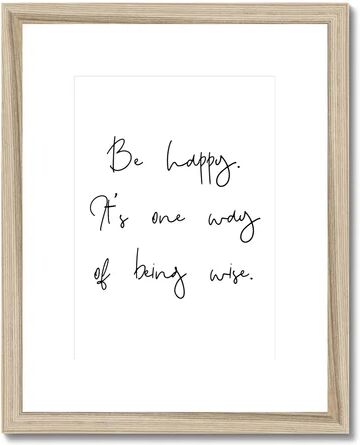 Be happy.
It's one way
of being wise.